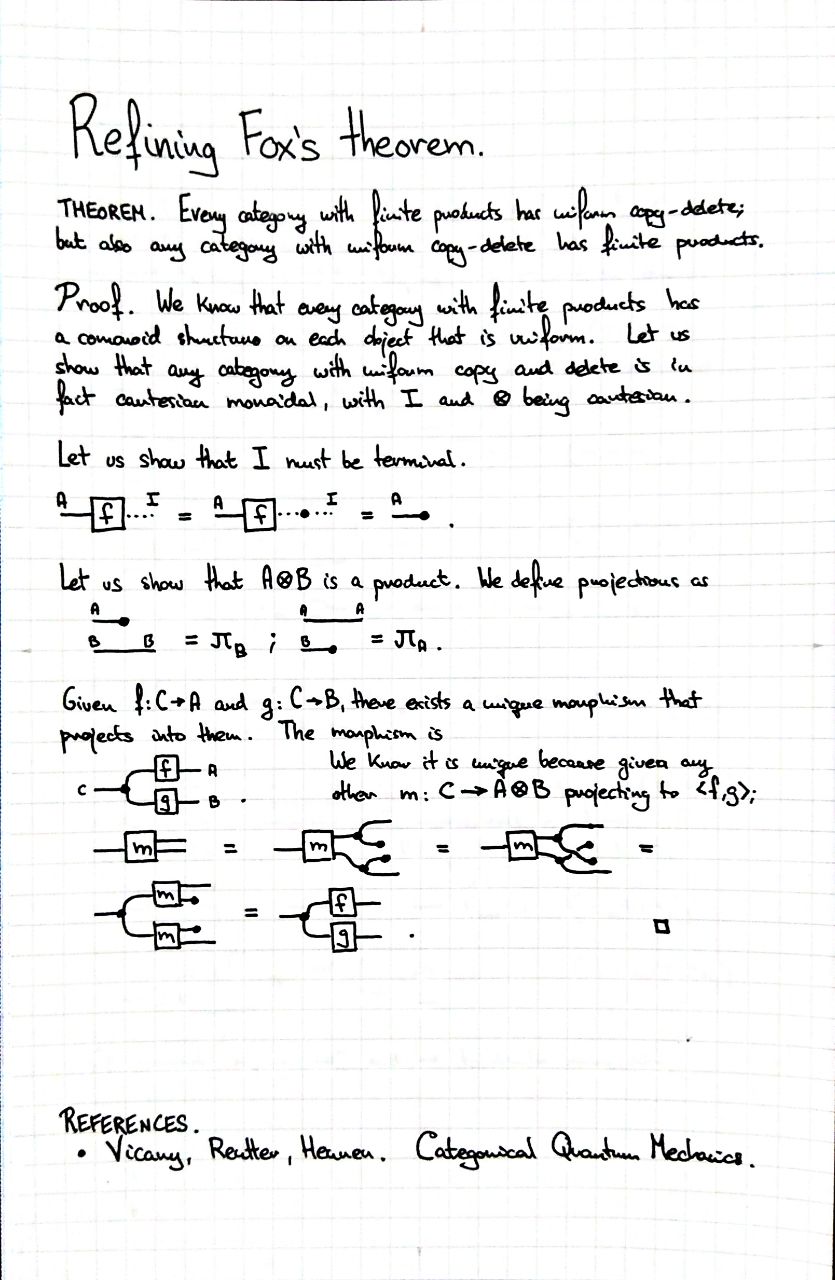 Refining Fox's theorem.
THEOREM. Every category with finite products has uniform copy-delete;
but also any category with uniform copy-delete has finite products.
Proof. We know that every category with finite products has
a comonoid structure on each object that is uniform. Let us
show that any category with uniform copy and delete is in
fact cartesian monoidal, with I and ⊗ being cartesian.
Let us show that I must be terminal.
A f I = A f I = A .
Let us show that A⊗B is a product. We define projections as
A A A
B B = π_B ; B = π_A .
Given f: C→A and g: C→B, there exists a unique morphism that
projects into them. The morphism is
C f A g B .
We know it is unique because given any
other m: C → A⊗B projecting to <f,g>;
m = m = m =
m m = f g . □
REFERENCES.
• Vicary, Reutter, Heunen. Categorical Quantum Mechanics.